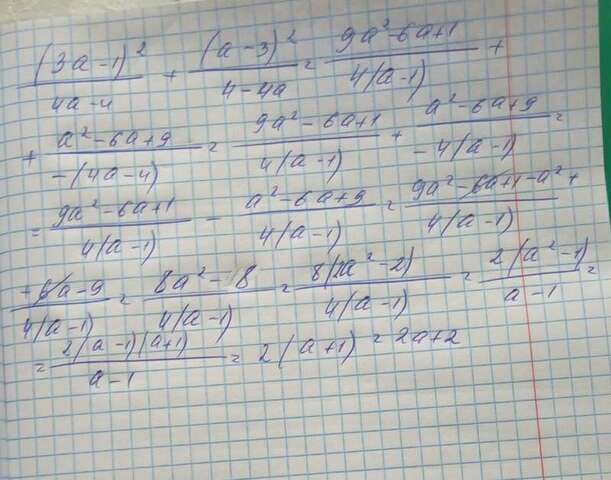 (3a-1)²/(4a-4) + (a-3)²/(4-4a) = (9a²-6a+1)/(4(a-1)) +
+ (a²-6a+9)/(-(4a-4)) = (9a²-6a+1)/(4(a-1)) + (a²-6a+9)/(-4(a-1)) =
= (9a²-6a+1)/(4(a-1)) - (a²-6a+9)/(4(a-1)) = (9a²-6a+1-a²+
+6a-9)/(4(a-1)) = (8a²-8)/(4(a-1)) = 8(a²-2)/(4(a-1)) = 2(a²-1)/(a-1) =
= 2(a-1)(a+1)/(a-1) = 2(a+1) = 2a+2